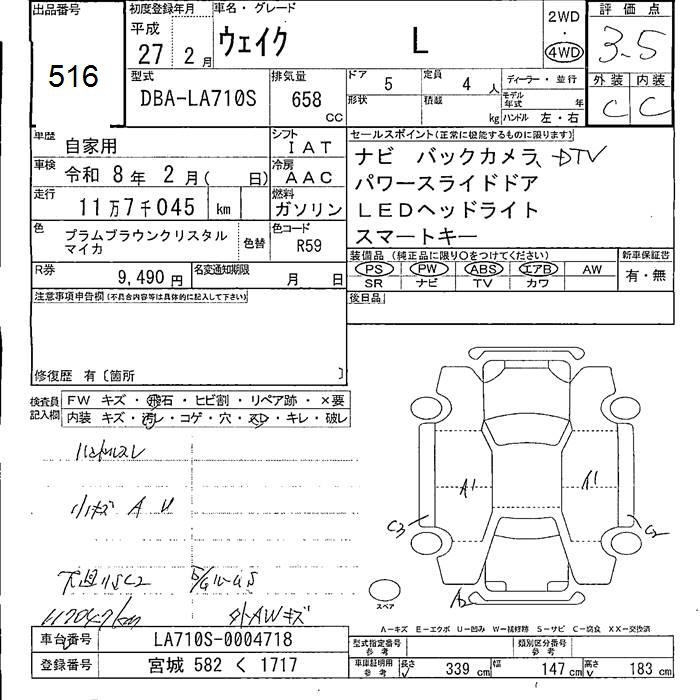 出品番号
516
初度登録年月
平成
27 2月
車名・グレード
ウェイク L
2WD
4WD
評価点
3.5
外装 内装
C C
型式
DBA-LA710S
排気量
658
CC
ドア 5
定員 4人
形状
積載 kg
ディーラー・並行
モデル年式 年
ハンドル 左・右
車歴 自家用
シフト IAT
車検 令和 8年 2月( 日)
冷房 AAC
走行 11万7千045 km
燃料 ガソリン
色 プラムブラウンクリスタル
マイカ
色替
色コード R59
R券 9,490 円
名変通知期限 月 日
セールスポイント(正常に機能するものに限ります)
ナビ バックカメラ、DTV
パワースライドドア
LEDヘッドライト
スマートキー
装備品 (純正品に限り○をつけてください)
PS PW ABS エアB AW
SR ナビ TV カワ
新車保証書
有・無
後日品
注意事項申告欄(不具合内容等は具体的に記入して下さい)
修復歴 有〔箇所 〕
検査員記入欄
FW キズ・飛石・ヒビ割・リペア跡・×要
内装 キズ・汚レ・コゲ・穴・スレ・キレ・破レ
小キズ A U
下廻りSC2
117047km
外AWキズ
A1
A1
C3
C2
A2
スペア
A-キズ E-エクボ U-凹み W-補修跡 S-サビ C-腐食 XX-交換済
車台番号 LA710S-0004718
登録番号 宮城 582 く 1717
型式指定番号
参考
類別区分番号
参考
車庫証明用
参考
長さ 339 cm 幅 147 cm 高さ 183 cm